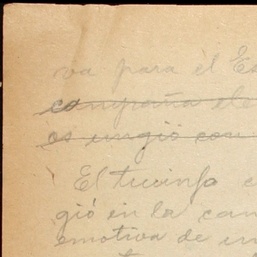 va para el Es
campaña ele
os ungió con
El triunfo e
gió en la cam
emotiva de un